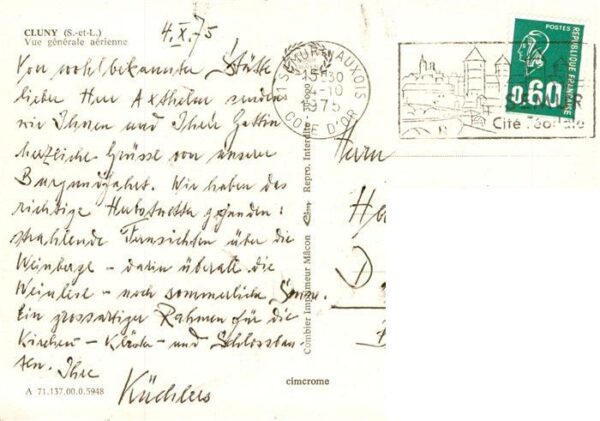 CLUNY (S.-et-L.)
Vue générale aérienne
4.X.75
Von wohlbekannter Stätte
lieber Herr Axthelm senden
wir Ihnen und Ihrer Gattin
herzliche Grüsse von unserer
Burgundfahrt. Wir haben das
richtige Herbstwetter gefunden:
strahlende Fernsichten über die
Weinberge - darin überall die
Weinlese - noch sommerliche Sonne.
Ein grossartiger Rahmen für die
Kirchen- Kloster- und Schlossbau-
ten. Ihre
Küchlers
A 71.137.00.0.5948
cimcrome
Combier Imprimeur Mâcon
Repro. Interdite
21 SEMUR EN AUXOIS
15H30
4-10
1975
COTE D'OR
SEMUR
Cité Féodale
POSTES
REPUBLIQUE FRANÇAISE
0.60
Herrn